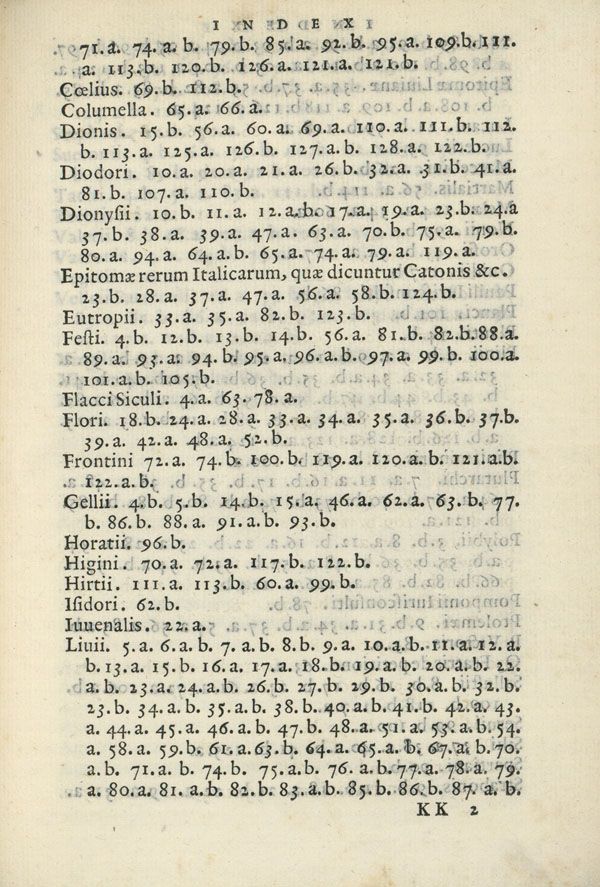 INDEX
71.a. 74.a.b. 79.b. 85.a. 92.b. 95.a. 109.b. 111.
a. 113.b. 120.b. 126.a. 121.a. 121.b.
Cœlius. 69.b. 112.b.
Columella. 65.a. 66.a.
Dionis. 15.b. 56.a. 60.a. 69.a. 110.a. 111.b. 112.
b. 113.a. 125.a. 126.b. 127.a.b. 128.a. 122.b.
Diodori. 10.a. 20.a. 21.a. 26.b. 32.a. 31.b. 41.a.
81.b. 107.a. 110.b.
Dionyſii. 10.b. 11.a. 12.a.b. 17.a. 19.a. 23.b. 24.a
37.b. 38.a. 39.a. 47.a. 63.a. 70.b. 75.a. 79.b.
80.a. 94.a. 64.a.b. 65.a. 74.a. 79.a. 119.a.
Epitomæ rerum Italicarum, quæ dicuntur Catonis &c.
23.b. 28.a. 37.a. 47.a. 56.a. 58.b. 124.b.
Eutropii. 33.a. 35.a. 82.b. 123.b.
Feſti. 4.b. 12.b. 13.b. 14.b. 56.a. 81.b. 82.b. 88.a.
89.a. 93.a. 94.b. 95.a. 96.a.b. 97.a. 99.b. 100.a.
101.a.b. 105.b.
Flacci Siculi. 4.a. 63. 78.a.
Flori. 18.b. 24.a. 28.a. 33.a. 34.a. 35.a. 36.b. 37.b.
39.a. 42.a. 48.a. 52.b.
Frontini 72.a. 74.b. 100.b. 119.a. 120.a.b. 121.a.b.
122.a.b.
Gellii. 4.b. 5.b. 14.b. 15.a. 46.a. 62.a. 63.b. 77.
b. 86.b. 88.a. 91.a.b. 93.b.
Horatii. 96.b.
Higini. 70.a. 72.a. 117.b. 122.b.
Hirtii. 111.a. 113.b. 60.a. 99.b.
Iſidori. 62.b.
Iuuenalis. 22.a.
Liuii. 5.a. 6.a.b. 7.a.b. 8.b. 9.a. 10.a.b. 11.a. 12.a.
b. 13.a. 15.b. 16.a. 17.a. 18.b. 19.a.b. 20.a.b. 22.
a.b. 23.a. 24.a.b. 26.b. 27.b. 29.b. 30.a.b. 32.b.
23.b. 34.a.b. 35.a.b. 38.b. 40.a.b. 41.b. 42.a. 43.
a. 44.a. 45.a. 46.a.b. 47.b. 48.a. 51.a. 53.a.b. 54.
a. 58.a. 59.b. 61.a. 63.b. 64.a. 65.a.b. 67.a.b. 70.
a.b. 71.a.b. 74.b. 75.a.b. 76.a.b. 77.a. 78.a. 79.
a. 80.a. 81.a.b. 82.b. 83.a.b. 85.b. 86.b. 87.a.b.
KK 2